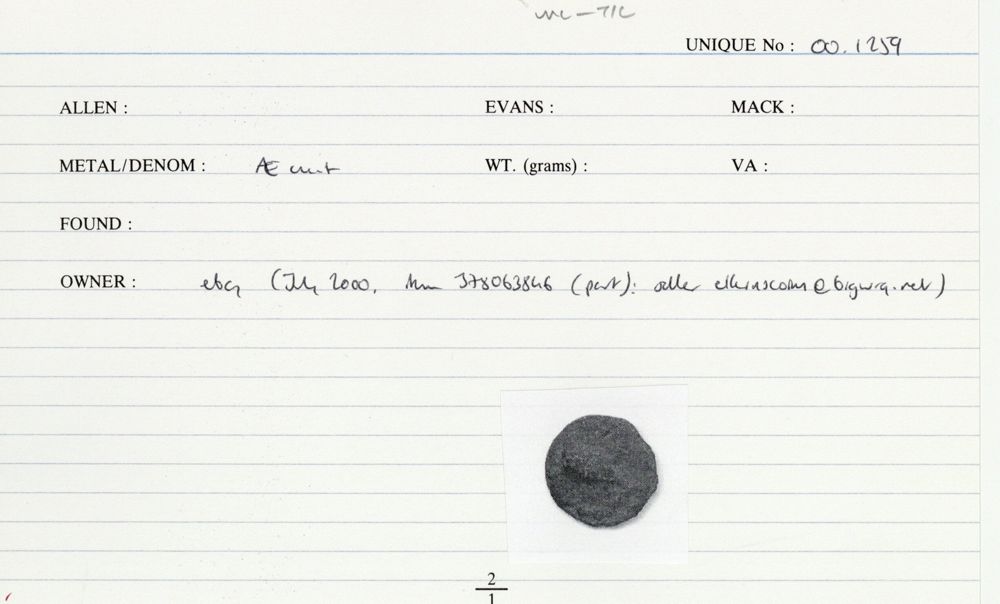 UNIQUE No : 00.1259
ALLEN : EVANS : MACK :
METAL/DENOM : Æ unit WT. (grams) : VA :
FOUND :
OWNER : ebay (July 2000, Item 378063846 (part): seller
2
1